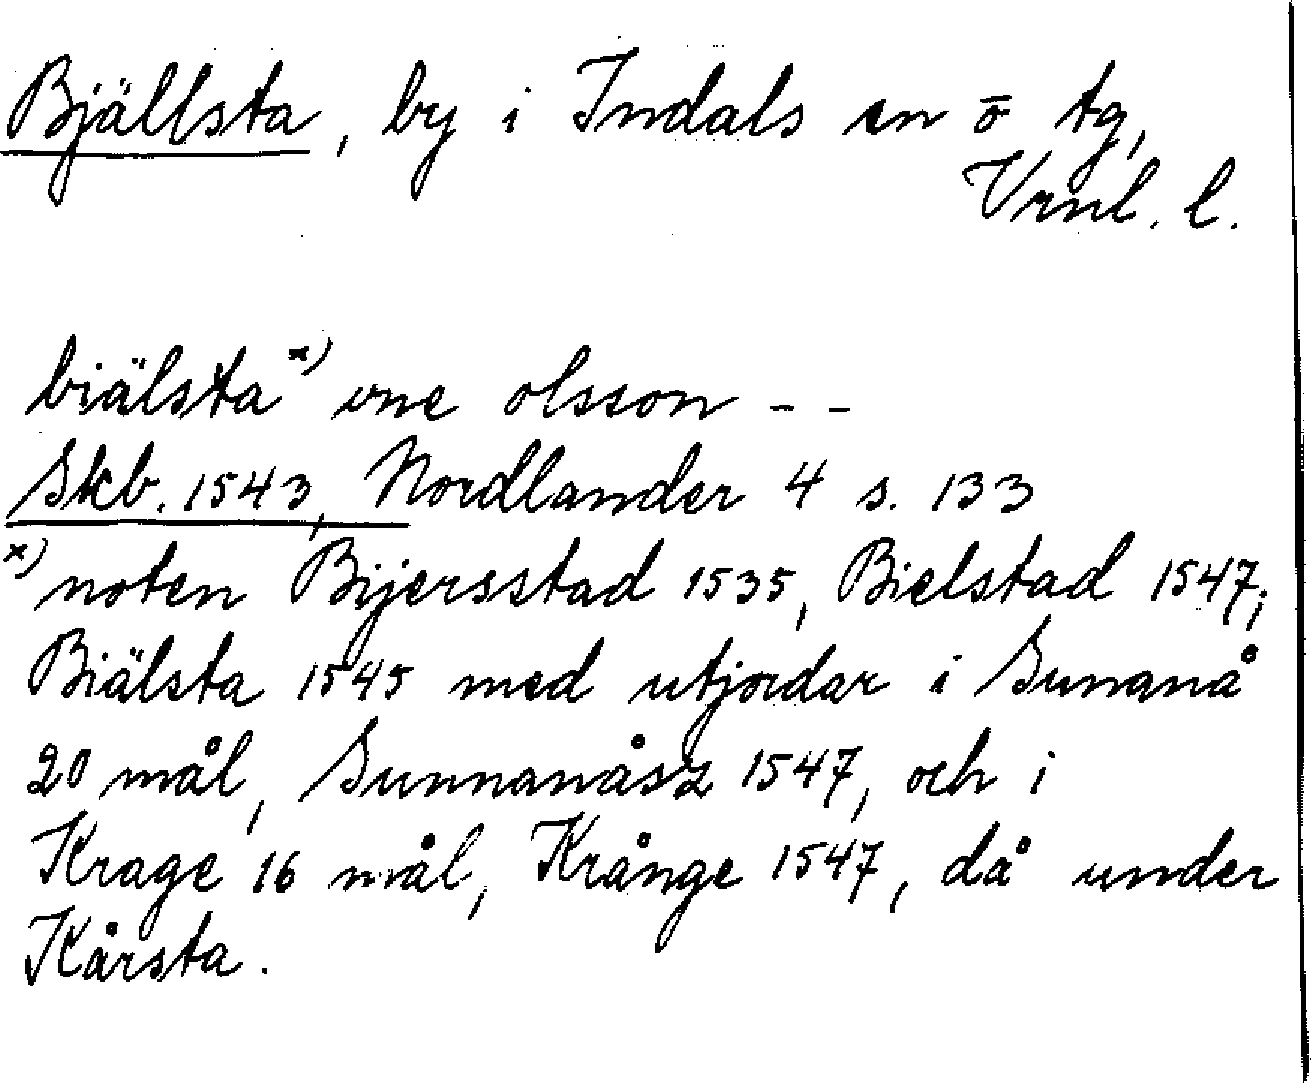 Bjällsta, by i Indals sn o tg,
Vrnl. l.
biälsta x) one olsson - -
Skb. 1543, Nordlander 4 s. 133
x) noten Bijersstad 1535, Bielstad 1547;
Biälsta 1545 med utjordar i Sunanå
20 mål, Sunnanåsz 1547, och i
Krage 16 mål, Krånge 1547, då under
Kårsta.